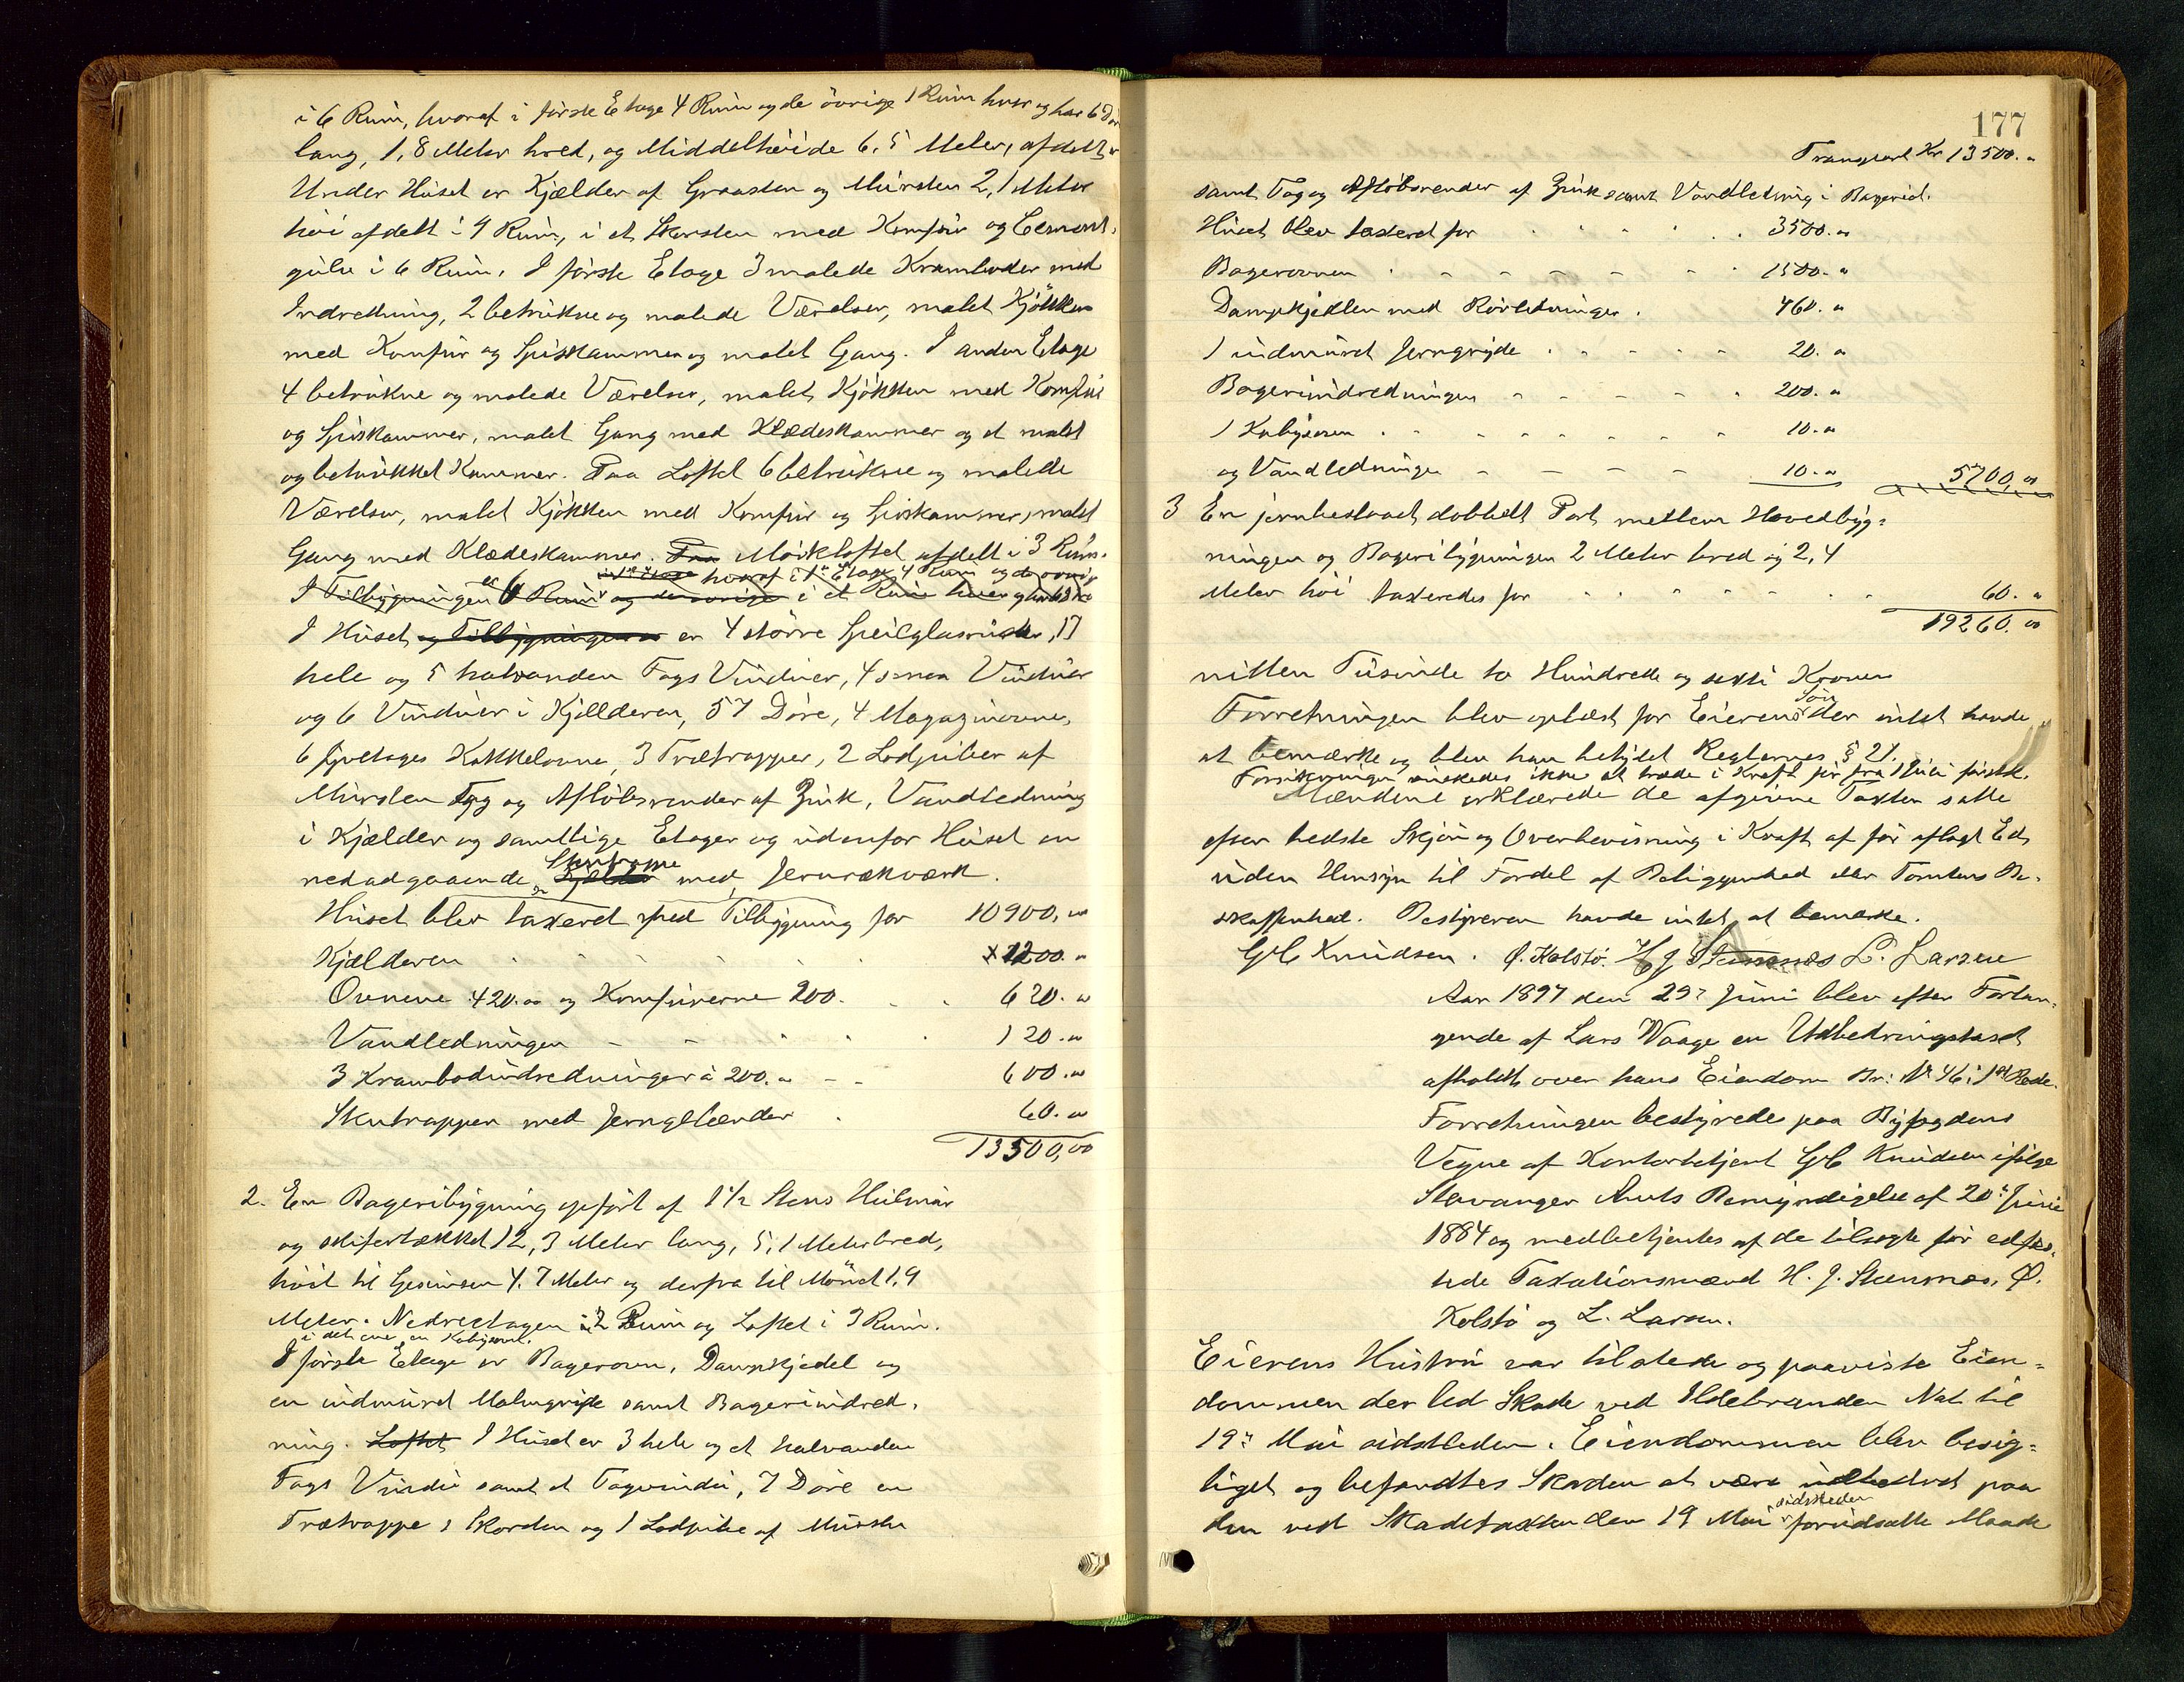 i 6 Rum, hvoraf i første Etage 4 Rum og de övrige 1 Rum hver og har 6 Dö
lang, 1,8 Meter bred, og Middelhöide 6,5 Meter, afdelt
Under Huset er Kjælder af Graasten og Mursten 2,1 Meter
höi afdelt i 9 Rum, i et Skorsten med Komfur og Cement-
gulv i 6 Rum. I første Etage 3 malede Kramboder med
Indretning, 2 betrukne og malede Værelser, malet Kjökken
med Komfur og Spiskammer og malet Gang. I anden Etage
4 betrukne og malede Værelser, malet Kjökken med Komfur
og Spiskammer, malet Gang med Klædeskammer og et malet
og betrukket Kammer. Paa Loftet 6 betrukne og malede
Værelser, malet Kjökken med Komfur og Spiskammer, malet
Gang med Klædeskammer. Mörkloftet afdelt i 3 Rum.
hvoraf i 1ste Etage 4 Rum og de övrige
I Tilbygningen er 6 Rum og de övrige i et Rum hver og har
I Huset og Tilbygningen er 4 større Speilglasruder, 17
hele og 5 halvanden Fags Vinduer, 4 smaa Vinduer
og 6 Vinduer i Kjelderen, 57 Döre, 4 Magazinovne,
6 Etages Kakkelovne, 3 Trætrapper, 2 Lodpiber af
Mursten Tag og Aflöbsrender af Zink, Vandledning
i Kjælder og samtlige Etager og udenfor Huset en
nedadgaaende Stentrappe med Jernrækværk.
Huset blev taxeret med Tilbygning for 10900,00
Kjælderen 1200.00
Ovnene 420.00 og Komfurerne 200. 620.00
Vandledningen 120.00
3 Krambodindredninger à 200.00 600.00
Stentrappen med Jerngelænder 60.00
13500,00
2. En Bageribygning opfört af 1 1/2 Stens Hulmur
og skifertækket 12,3 Meter lang, 5,1 Meter bred,
höit til Gesimsen 4.7 Meter og derfra til Mönet 1,9
Meter. Nedreetagen i 2 Rum og Loftet i 3 Rum.
i det ene en Kabysovn.
I første Etage er Bagerovn, Dampkjedel og
en indmuret Malmgryde samt Bageriindred-
ning. Loftet I Huset er 3 hele og et halvanden
Fags Vindu samt et Tagvindu, 7 Döre en
Trætrappe 1 Skorsten og 1 Lodpibe af Mursten
177
Transport Kr 13500.00
samt Tag og Aflöbsrender af Zink samt Vandledning i Bageriet.
Huset blev taxeret for 3500.00
Bagerovnen 1500.00
Dampkjedlen med Rörledninger 460.00
1 indmuret Jerngryde 20.00
Bageriindredningen 200.00
1 Kabysovn 10.00
og Vandledningen 10.00 5700,00
3 En jernbeslaaet dobbelt Port mellem Hovedbyg-
ningen og Bageribygningen 2 Meter bred og 2,4
Meter höi taxeredes for 60.00
19260.00
nitten Tusinde to Hundrede og sexti Kroner
Forretningen blev oplæst for Eierens Sön der intet havde
at bemærke og blev han betydet Reglernes § 21.
Forsikringen önskedes ikke at træde i Kraft för fra 1 Juli förstk.
Mændene erklærede de afgivne Taxter satte
efter bedste Skjön og Overbevisning i Kraft af för aflagt Ed,
uden Hensyn til Fordel af Beliggenhed eller Tomtens Be-
skaffenhed. Bestyreren havde intet at bemærke.
GC Knudsen. Ø. Kolstö. H J Stensnæs L. Larsen
Aar 1897 den 29de Juni blev efter Forlan-
gende af Lars Waage en Udbedringstaxt
afholdt over hans Eiendom Br: No 46 i 1ste Rode.
Forretningen bestyrede paa Byfogdens
Vegne af Kontorbetjent GC Knudsen ifölge
Stavanger Amts Bemyndigelse af 20de Juni
1884 og medbetjentes af de tilsagte för edfæs-
tede Taxationsmænd H. J. Stensnæs, Ø.
Kolstö og L. Larsen.
Eierens Hustru var tilstede og paaviste Eien-
dommen der led Skade ved Ildebranden Nat til
19de Mai sidstleden. Eiendommen blev besig-
tiget og befandtes Skaden at være udbedret paa
den ved Skadetaxten den 19 Mai sidstleden forudsatte Maade